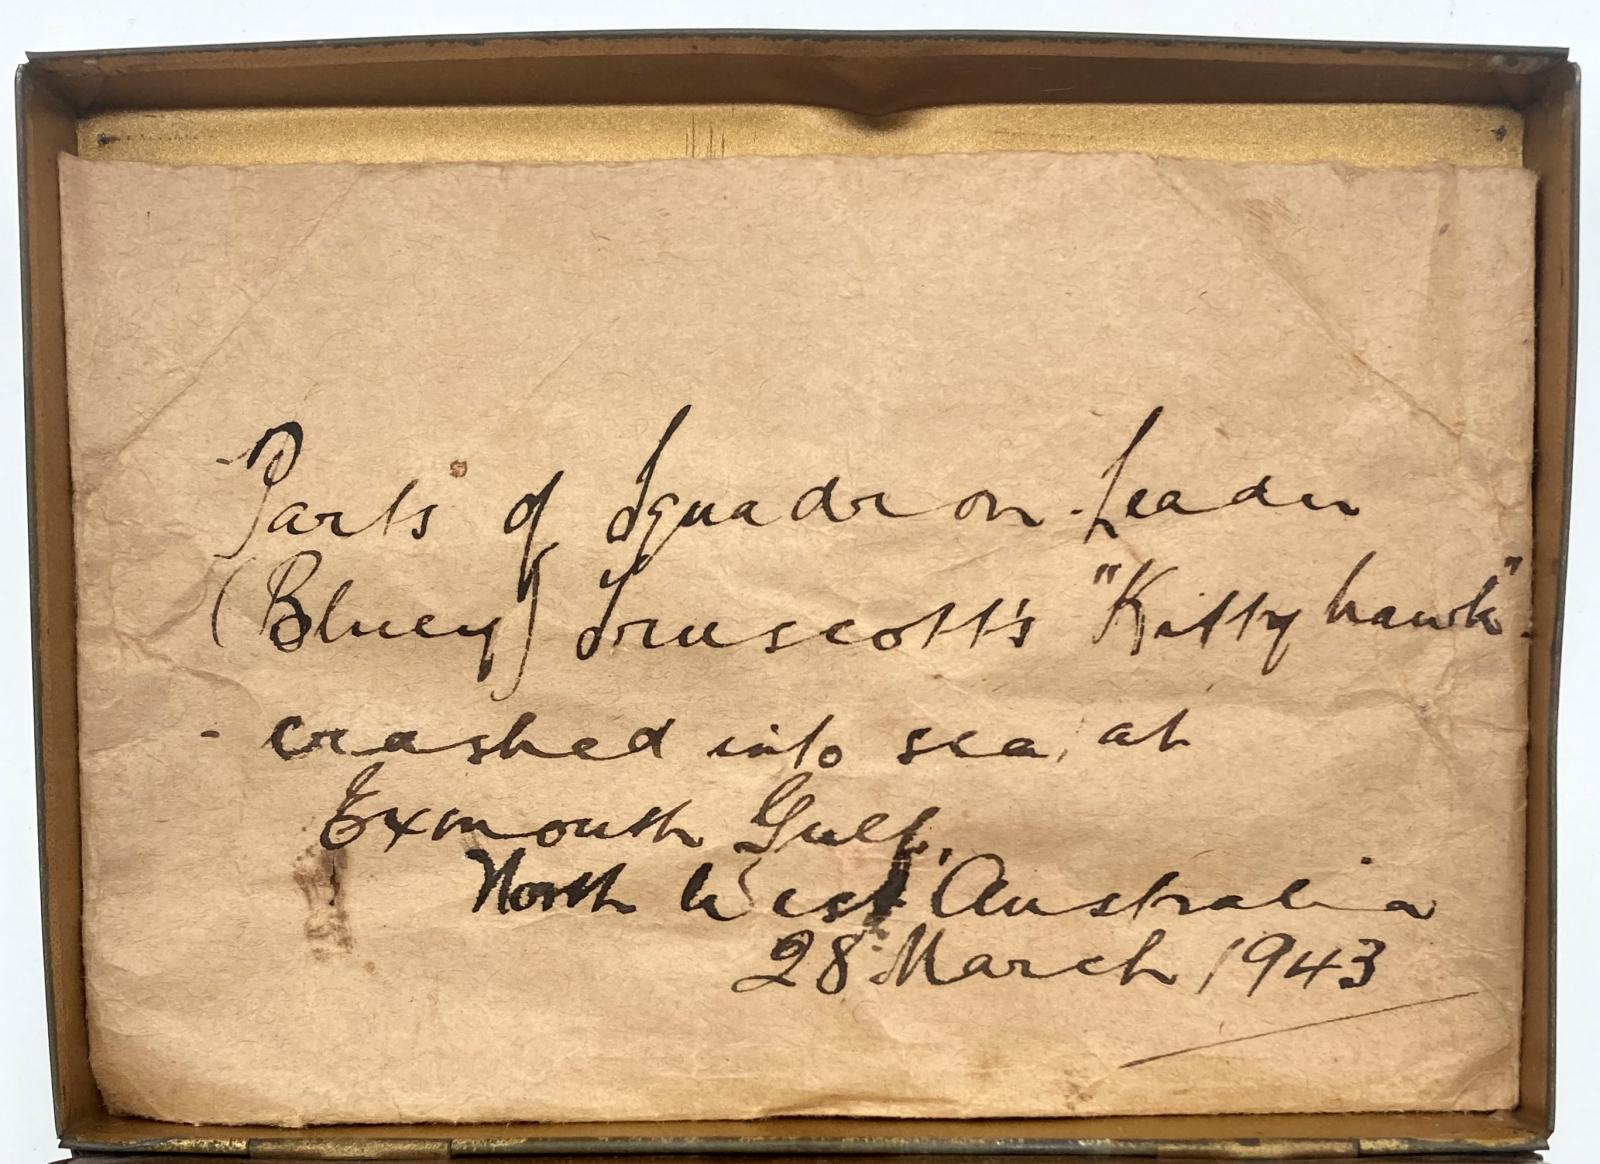 Parts of Squadron Leader
(Bluey) Truscott's "Kittyhawk"
- crashed into sea, at
Exmouth Gulf,
North West Australia
28 March 1943